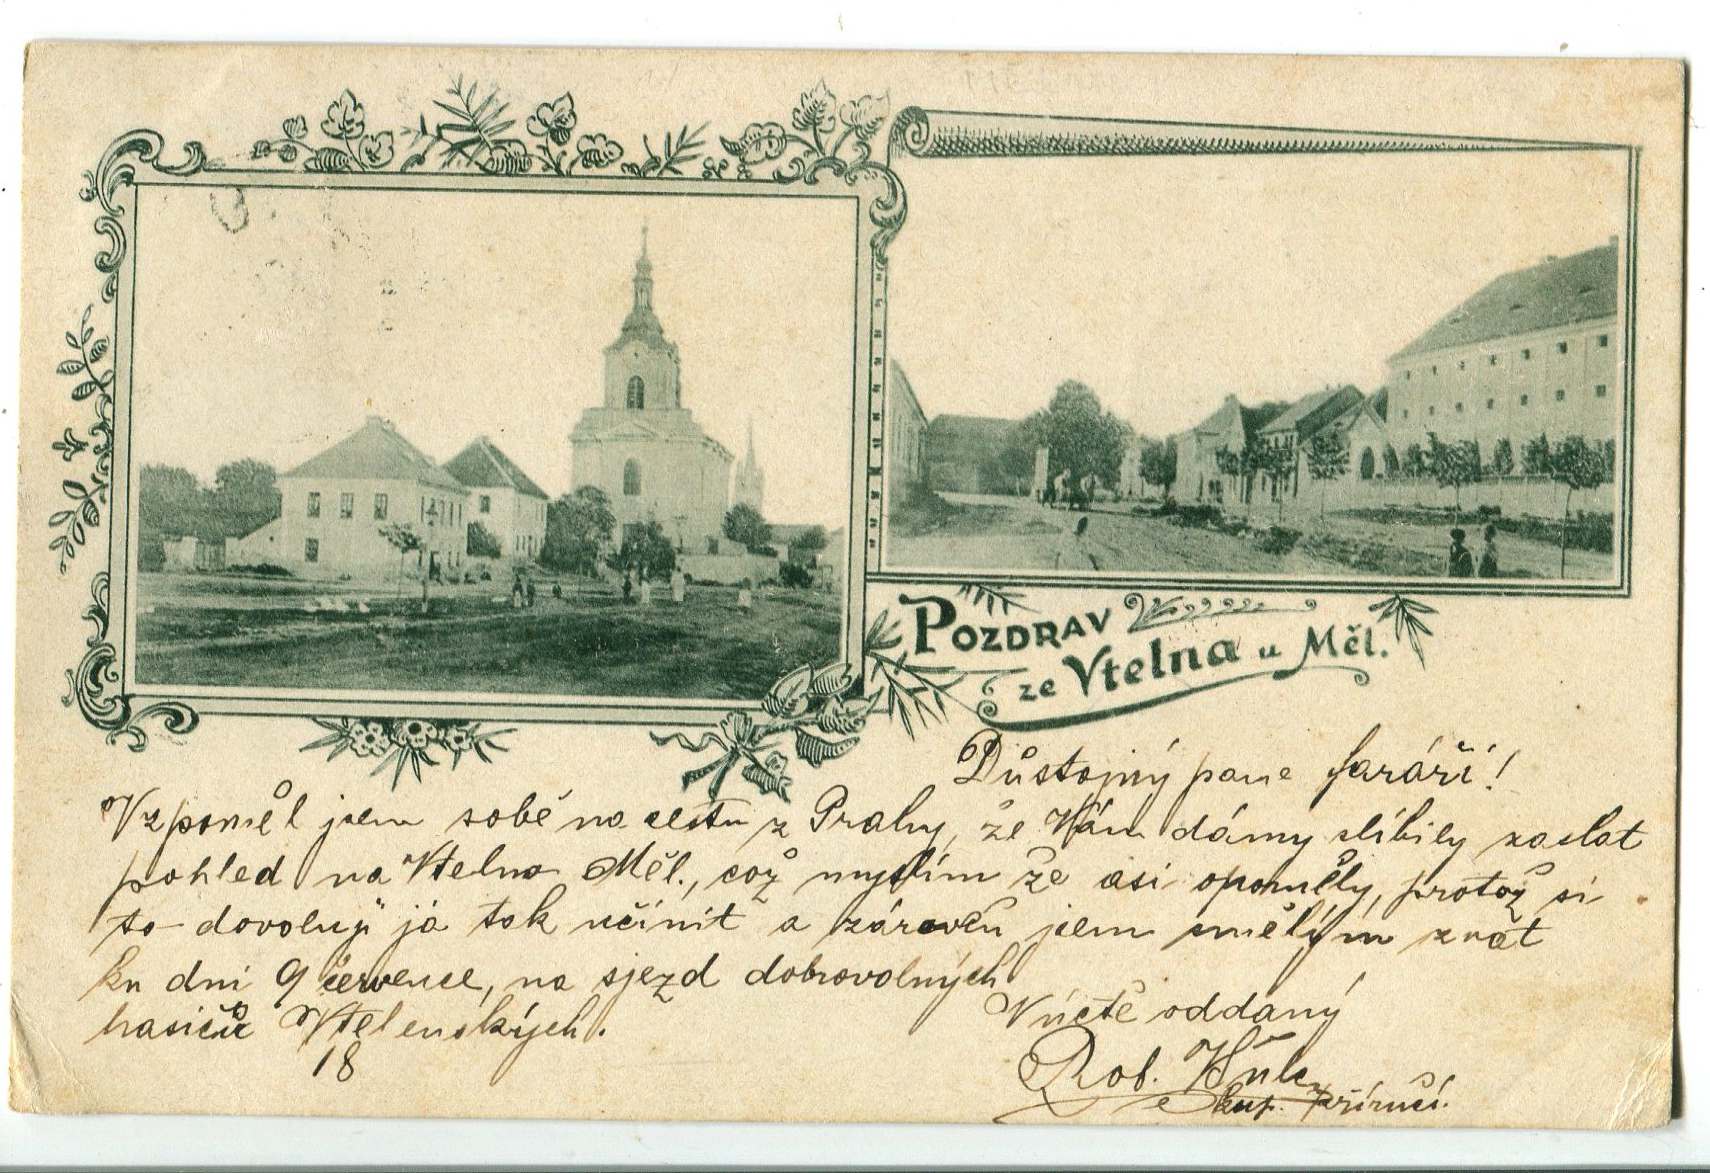 POZDRAV
ze Vtelna u Měl.
Důstojný pane faráři!
Vzpoměl jsem sobě na cestu z Prahy, že Vám dámy slíbily zaslat
pohled na Vtelno Měl., což myslím že asi opoměly, protož si
to dovoluji já tak učinit a zároveň jsem smělým zvát
ku dni 9 července, na sjezd dobrovolných
hasičů Vtelenských.
V úctě oddaný
18
Rob.
kup. příručí.